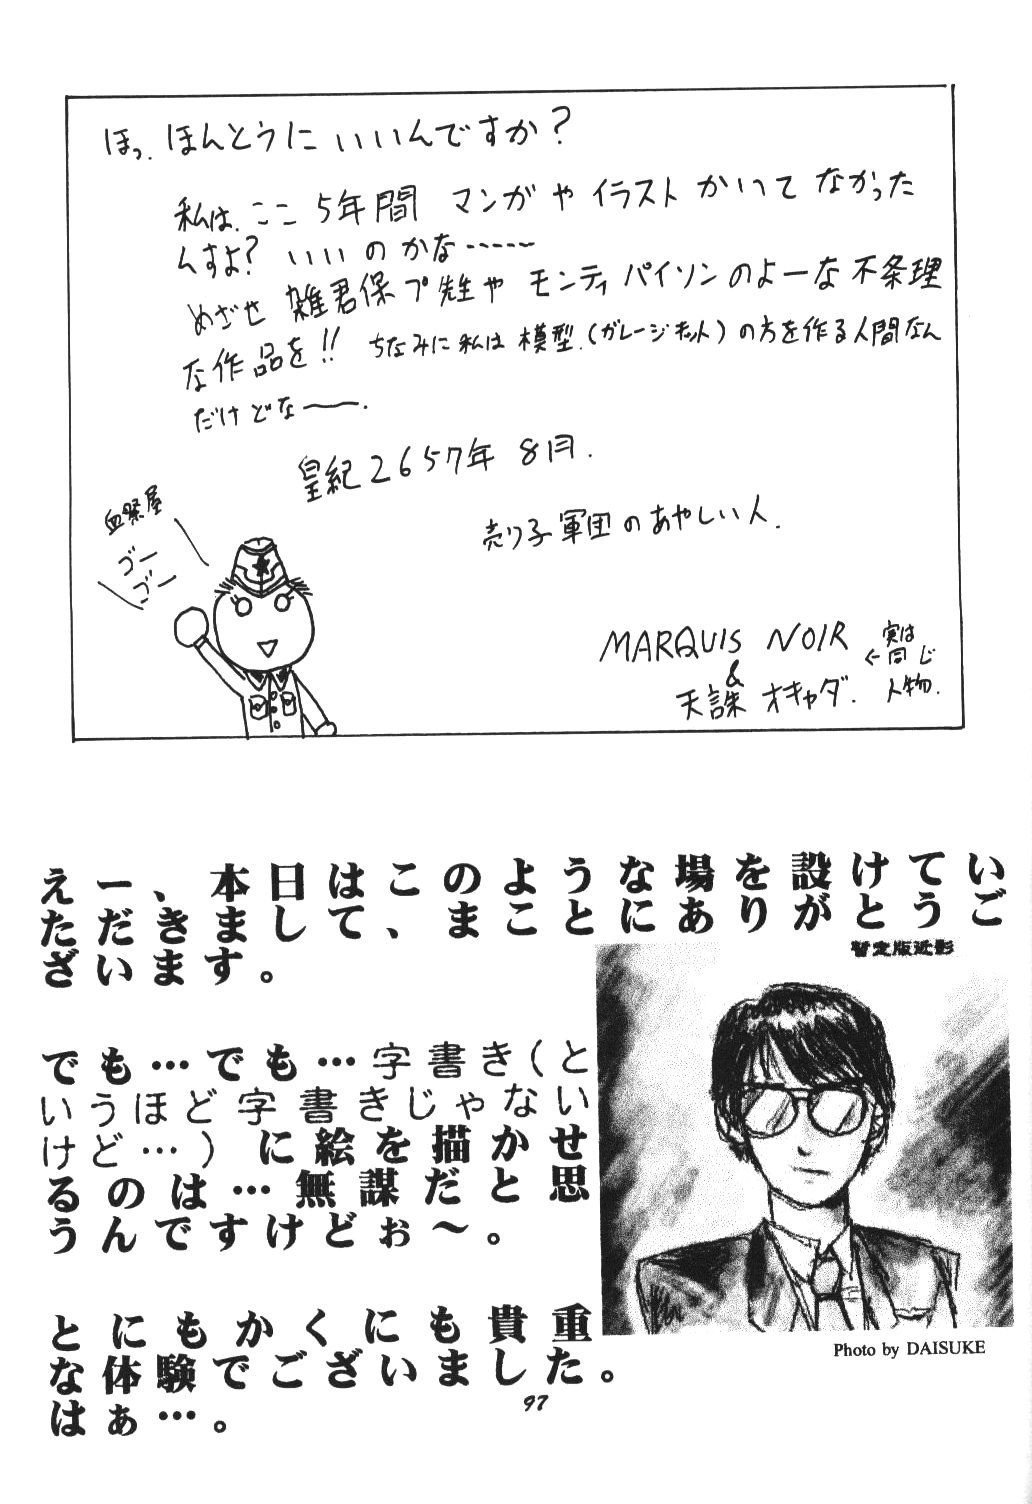 ほっ、ほんとうに いいんですか？
私は、ここ 5年間 マンガや イラスト かいて なかった
んすよ？ いいのかな……
めざせ 雑君保プ先生や モンティ パイソンのよーな 不条理
な作品を!! ちなみに 私は 模型、(ガレージキット)の方を作る人間なん
だけどなー。
皇紀2657年 8月.
血祭屋
ゴー
ゴー
売り子軍団のあやしい人.
MARQUIS NOIR
&
天誅 オキャダ.
実は
←同じ
人物.
えー、本日はこのような場を設けてい
ただきまして、まことにありがとうご
ざいます。
暫定版近影
でも…でも…字書き(と
いうほど字書きじゃない
けど…)に絵を描かせ
るのは…無謀だと思
うんですけどぉ～。
Photo by DAISUKE
とにもかくにも貴重
な体験でございました。
はぁ…。
97